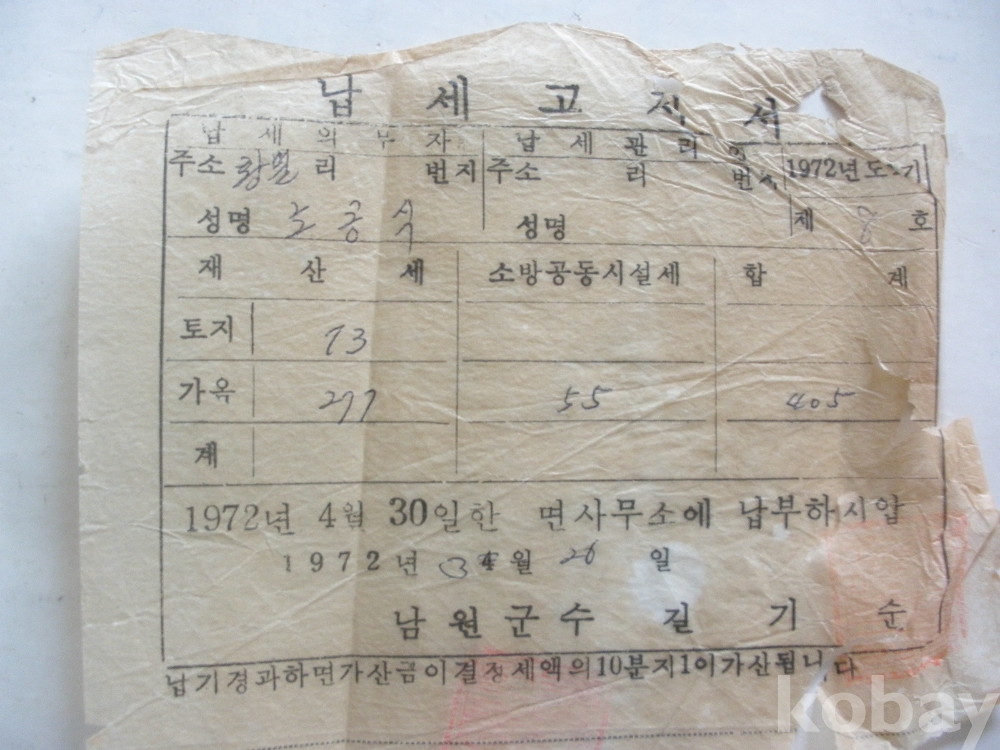 납 세 고 지 서
납 세 의 무 자 납 세 관 리 인
주소 황벌 리 번지 주소 리 번지 1972년도 기
성명 노 공 식 성명 제 8 호
재 산 세 소방공동시설세 합 계
토지 73
가옥 277 55 405
계
1972년 4월 30일한 면사무소에 납부하시압
1972년 4월 26일
남원군수 길 기 순
납기경과하면가산금이결정세액의10분지1이가산됩니다
kobay